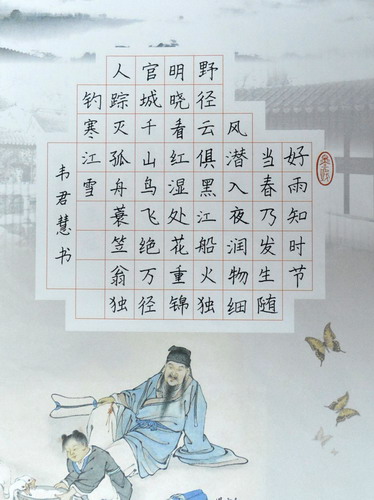 好雨知时节
当春乃发生随
风潜入夜润物细
野径云俱黑江船火独
明晓看红湿处花重锦
官城千山鸟飞绝万径
人踪灭孤舟蓑笠翁独
钓寒江雪
韦君慧书